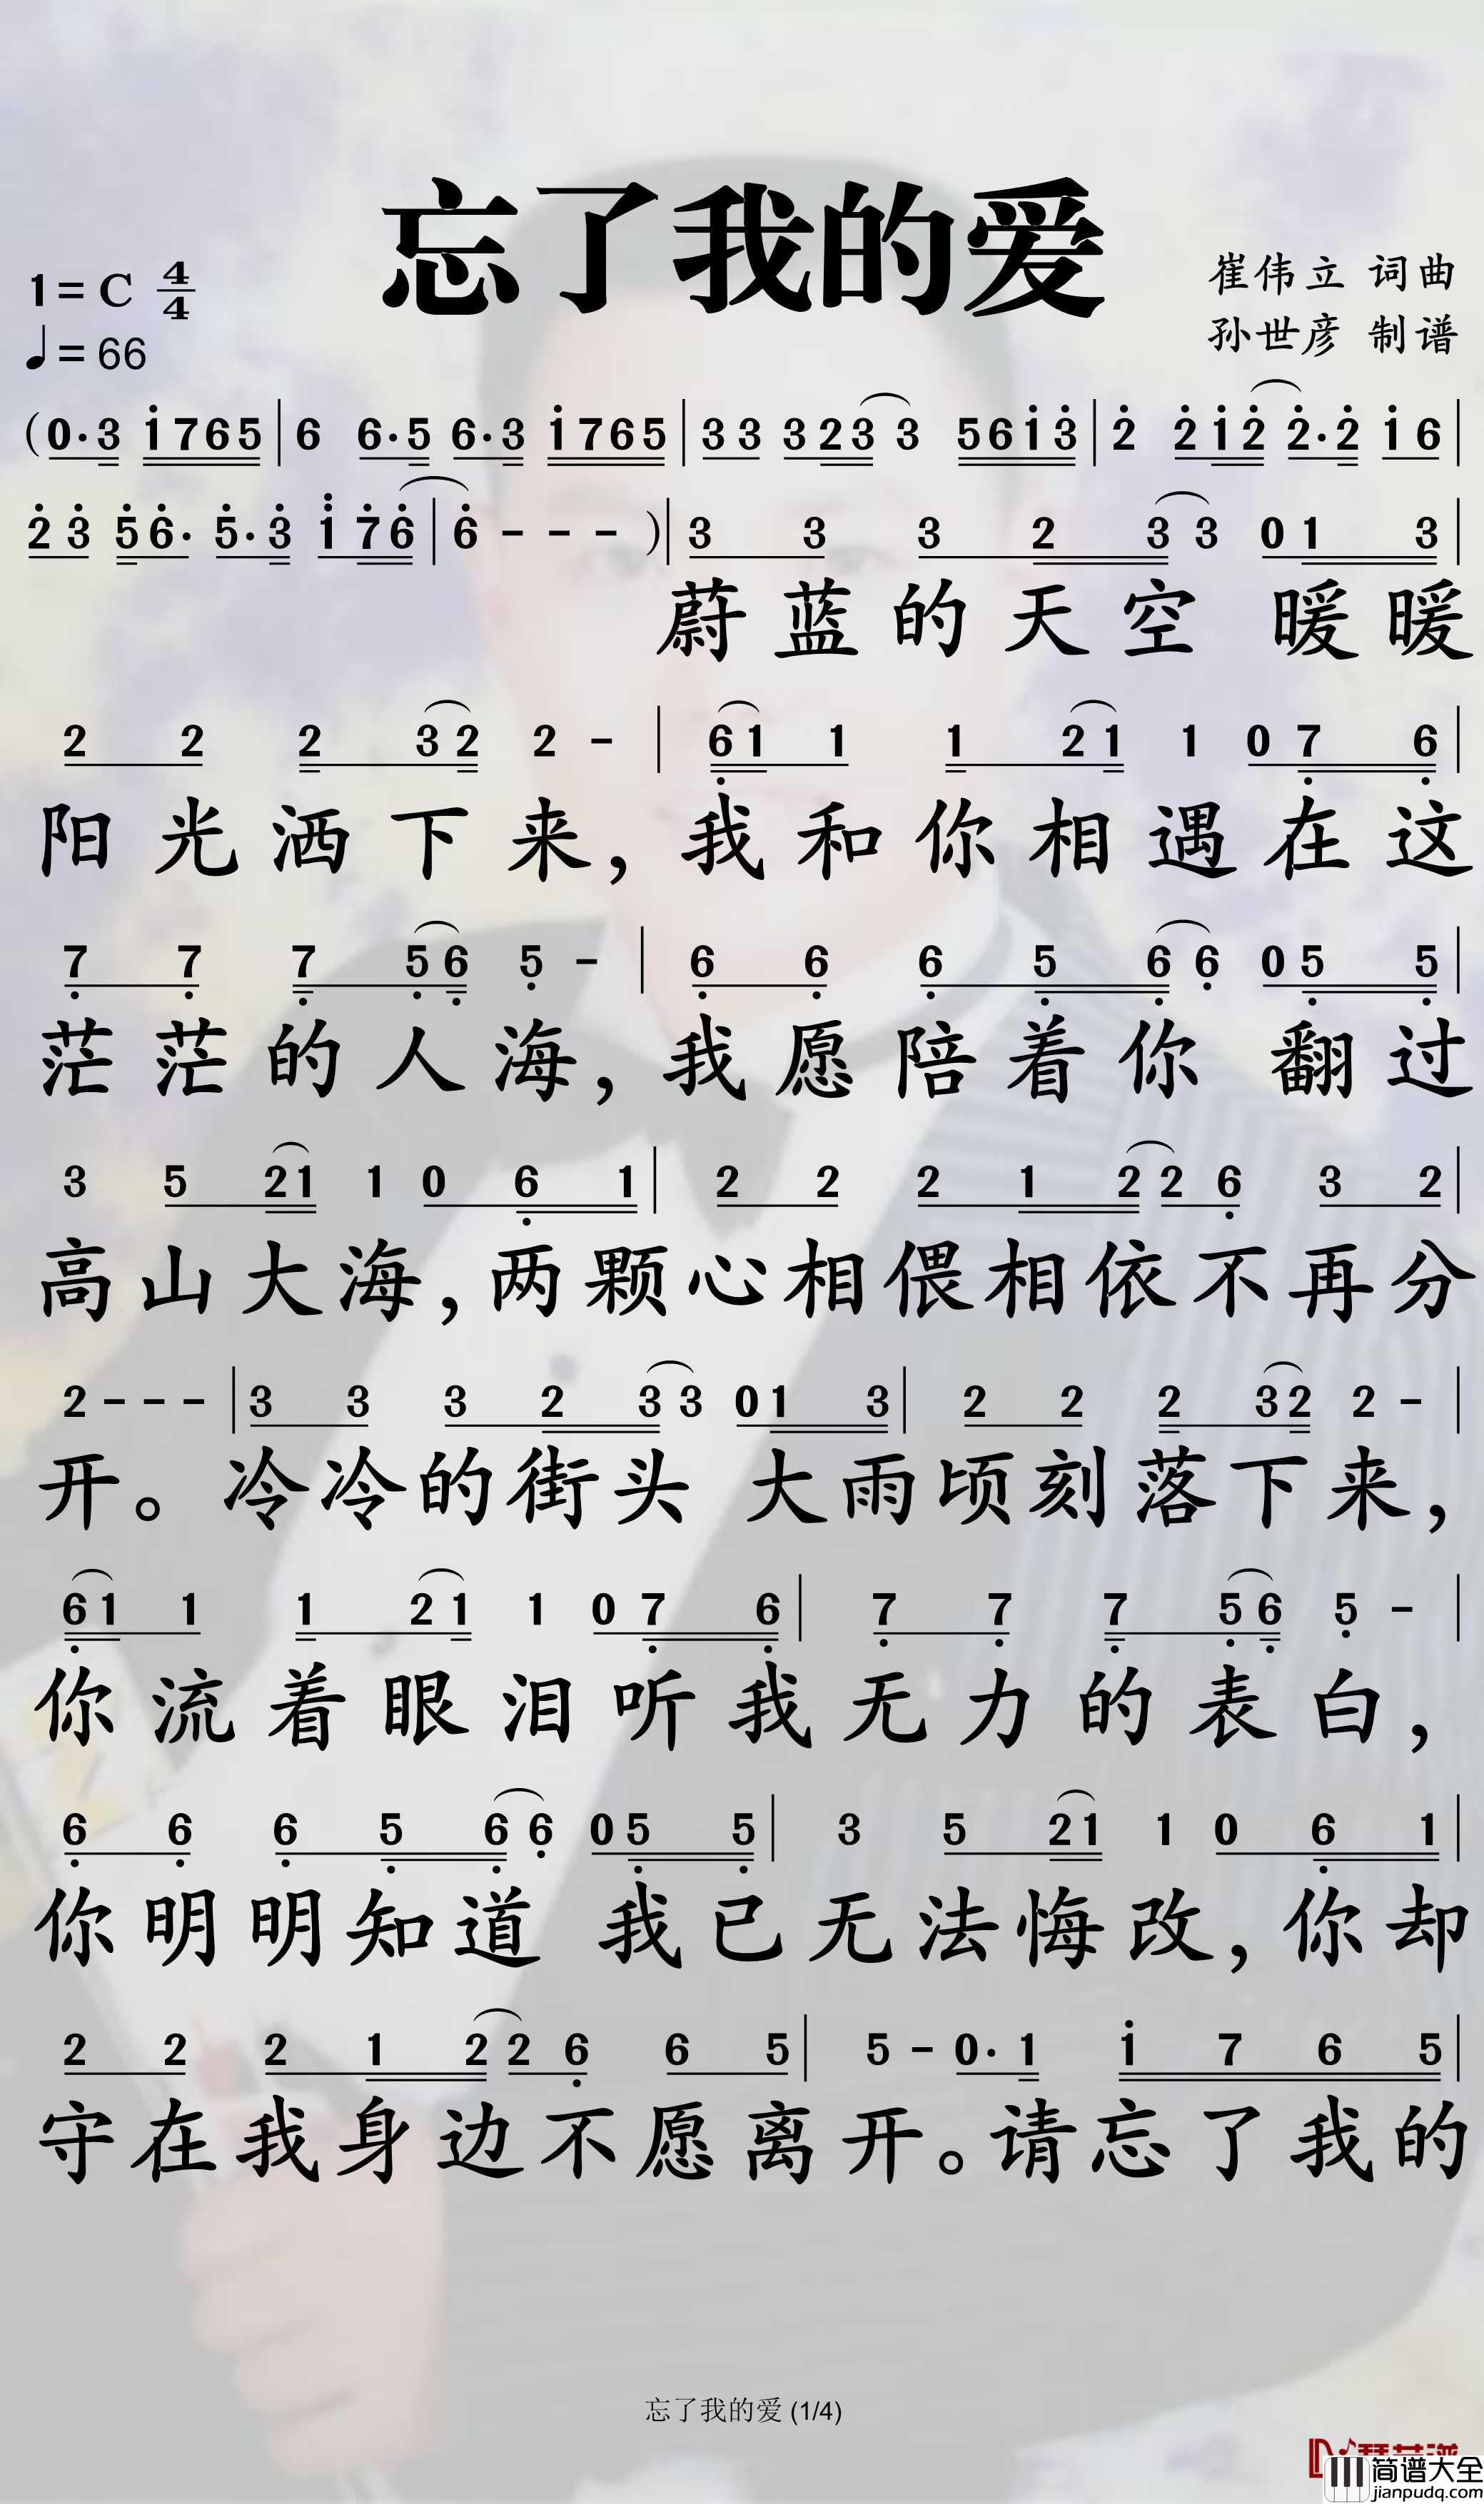 忘了我的爱
1=C 4/4
♩=66
崔伟立 词曲
孙世彦 制谱
(0·3 1765 | 6 6·5 6·3 1765 | 33 323 3 5613 | 2 212 2·2 16 |
23 56· 5·3 176 | 6 - - - ) | 3 3 3 2 3 3 0 1 3 |
蔚蓝的天空 暖暖
2 2 2 3 2 2 - | 6 1 1 1 2 1 1 0 7 6 |
阳光洒下来，我和你相遇在这
7 7 7 5 6 5 - | 6 6 6 5 6 6 0 5 5 |
茫茫的人海，我愿陪着你 翻过
3 5 2 1 1 0 6 1 | 2 2 2 1 2 2 6 3 2 |
高山大海，两颗心相偎相依不再分
2 - - - | 3 3 3 2 3 3 0 1 3 | 2 2 2 3 2 2 - |
开。冷冷的街头 大雨顷刻落下来，
6 1 1 1 2 1 1 0 7 6 | 7 7 7 5 6 5 - |
你流着眼泪听我无力的表白，
6 6 6 5 6 6 0 5 5 | 3 5 2 1 1 0 6 1 |
你明明知道 我已无法悔改，你却
2 2 2 1 2 2 6 6 5 | 5 - 0· 1 1 7 6 5 |
守在我身边不愿离开。请忘了我的
忘了我的爱 (1/4)
简谱大全
jianpudq.com